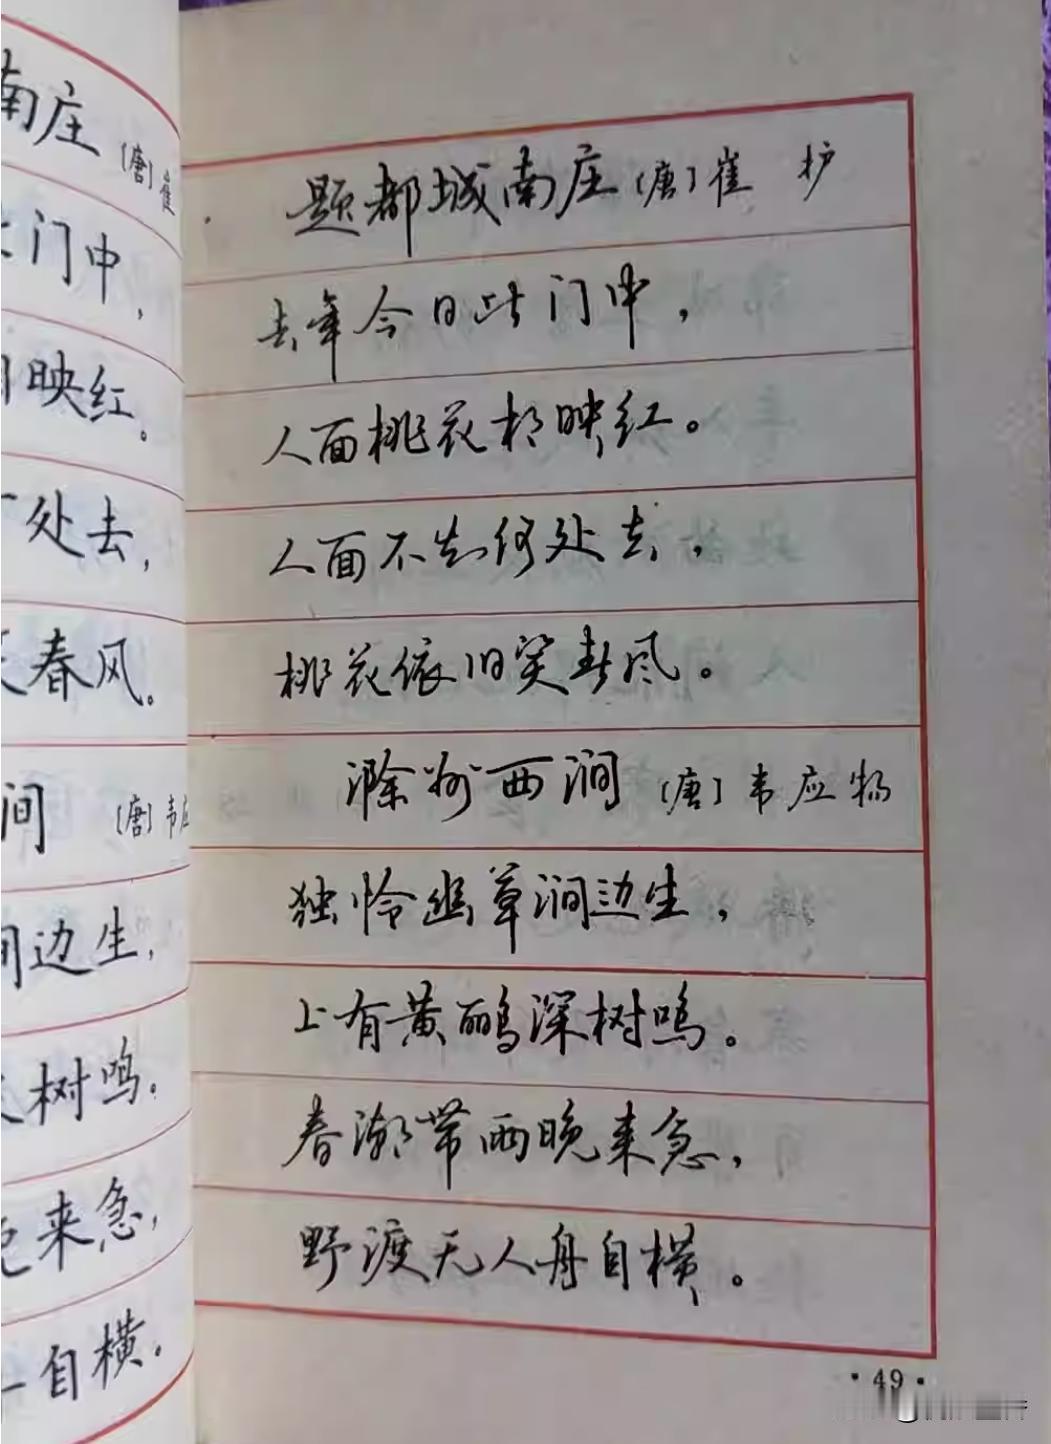 南庄 〔唐〕崔
门中，
映红。
处去，
春风。
间 〔唐〕韦应
边生，
树鸣。
来急，
自横。
题都城南庄〔唐〕崔 护
去年今日此门中，
人面桃花相映红。
人面不知何处去，
桃花依旧笑春风。
滁州西涧〔唐〕韦应物
独怜幽草涧边生，
上有黄鹂深树鸣。
春潮带雨晚来急，
野渡无人舟自横。
·49·